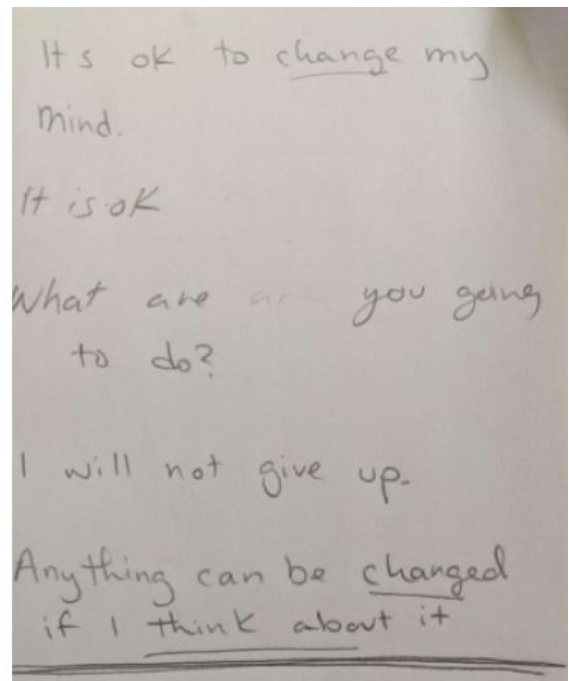 It s ok to change my
mind.
It is ok
What are are you going
to do?
I will not give up.
Anything can be changed
if I think about it